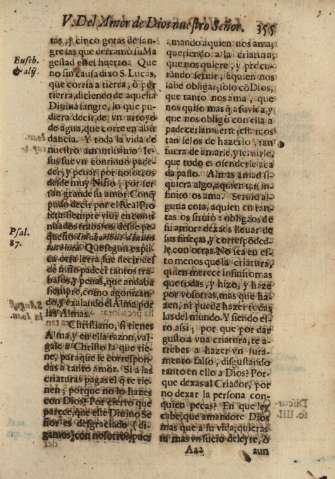 V. Del Amor de Dios nuestro Señor. 355
tas, y cinco gotas de san-
gre las que derramó su Ma
gestad en el huerto. Que
no sin causa dixo S. Lucas,
que corria a tierra, ò por
tierra, diciendo de aquella
Divina sangre, lo que pu-
diera decir de un arroyo
de agua, que corre en abun
dancia. Y toda la vida de
nuestro amantissimo Je-
sus fue un continuo pade-
cer; y penar por nosotros
desde muy Niño; por ser
tan grande su amor. Con
pudo decir por el Real Pro
feta siempre viví en conti
nuados trabajos desde pe
queño
Que segun expli
ca otra letra fue decir: des
de niño padecí tantos tra-
bajos, y penas, que andaba
siempre, como agonizan-
do, y exalando el Alma por
las Almas.
Christiano, si tienes
Alma, y en ella razon, val-
gate a Christo la que tie-
ne, para que le correspon-
das a tanto amor. Si a las
criaturas pagas el q̃ te tie-
nen; porque no lo hazes
con Dios? Por cierto que
parece, que este Divino Se
ñor es desgraciado (di-
gamoslo) con nosotros pues
Euseb.
& alij.
Psal.
87.
mando aquien nos ama;
queriendo a la criatura;
que nos quiere, y procu-
rando servir, aquien nos
sabe obligar; solo cõ Dios,
que tanto nos ama, que
nos quiso mas q̃ a su vida, y
que nos obligó con ella a
padecer la muerte, està mos
tan lejos de hazerlo,
fuera de amarle, y servirle,
que todo es ofenderle a ca
da passo. Almas amad si
quiera algo, aquien tan in-
finito os ama. Servid al-
guna cosa, aquien en tan-
tas os sirviò: obligaos de
su amor: dexaos llevar de
sus finezas, y corresponded-
le, con otras. No sea en es-
to menos que la criatura,
quien merece infinito mas
que todas, y hizo, y haze
por vosotras, mas que ha-
zen, ni puede hazer todas
las del mundo. Y siendo es-
to assi; por que por dar
gusto a una criatura, te a-
treves a hazer un jura-
mento falso, disgustando
tanto en ello a Dios? Por-
que dexas al Criador, por
no dexar la persona con
quien pecas? En que ley
cabe, que amandote Dios
mas que a su vida, quieras
tu mas un sucio deleyte, ò
Aa2 aun